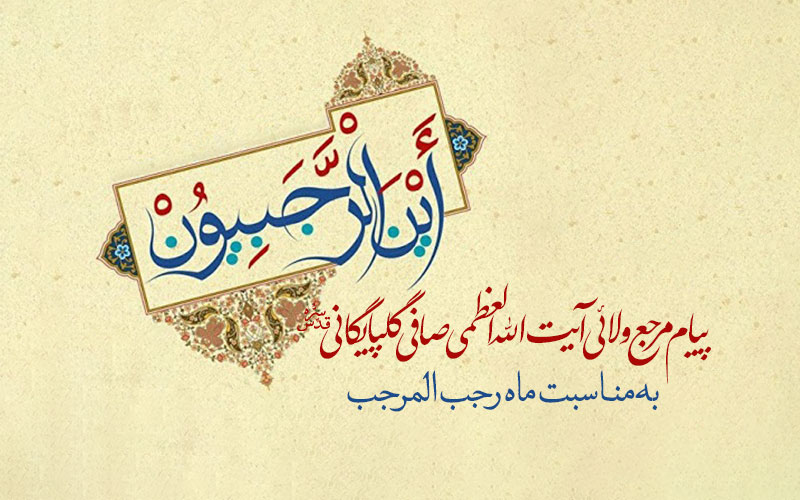 أَيْنَ الرَّجَبِيُونْ
پیام مرجع ولائی آیت الله العظمی صافی گلپایگانی قدس سره
به مناسبت ماه رجب المرجب